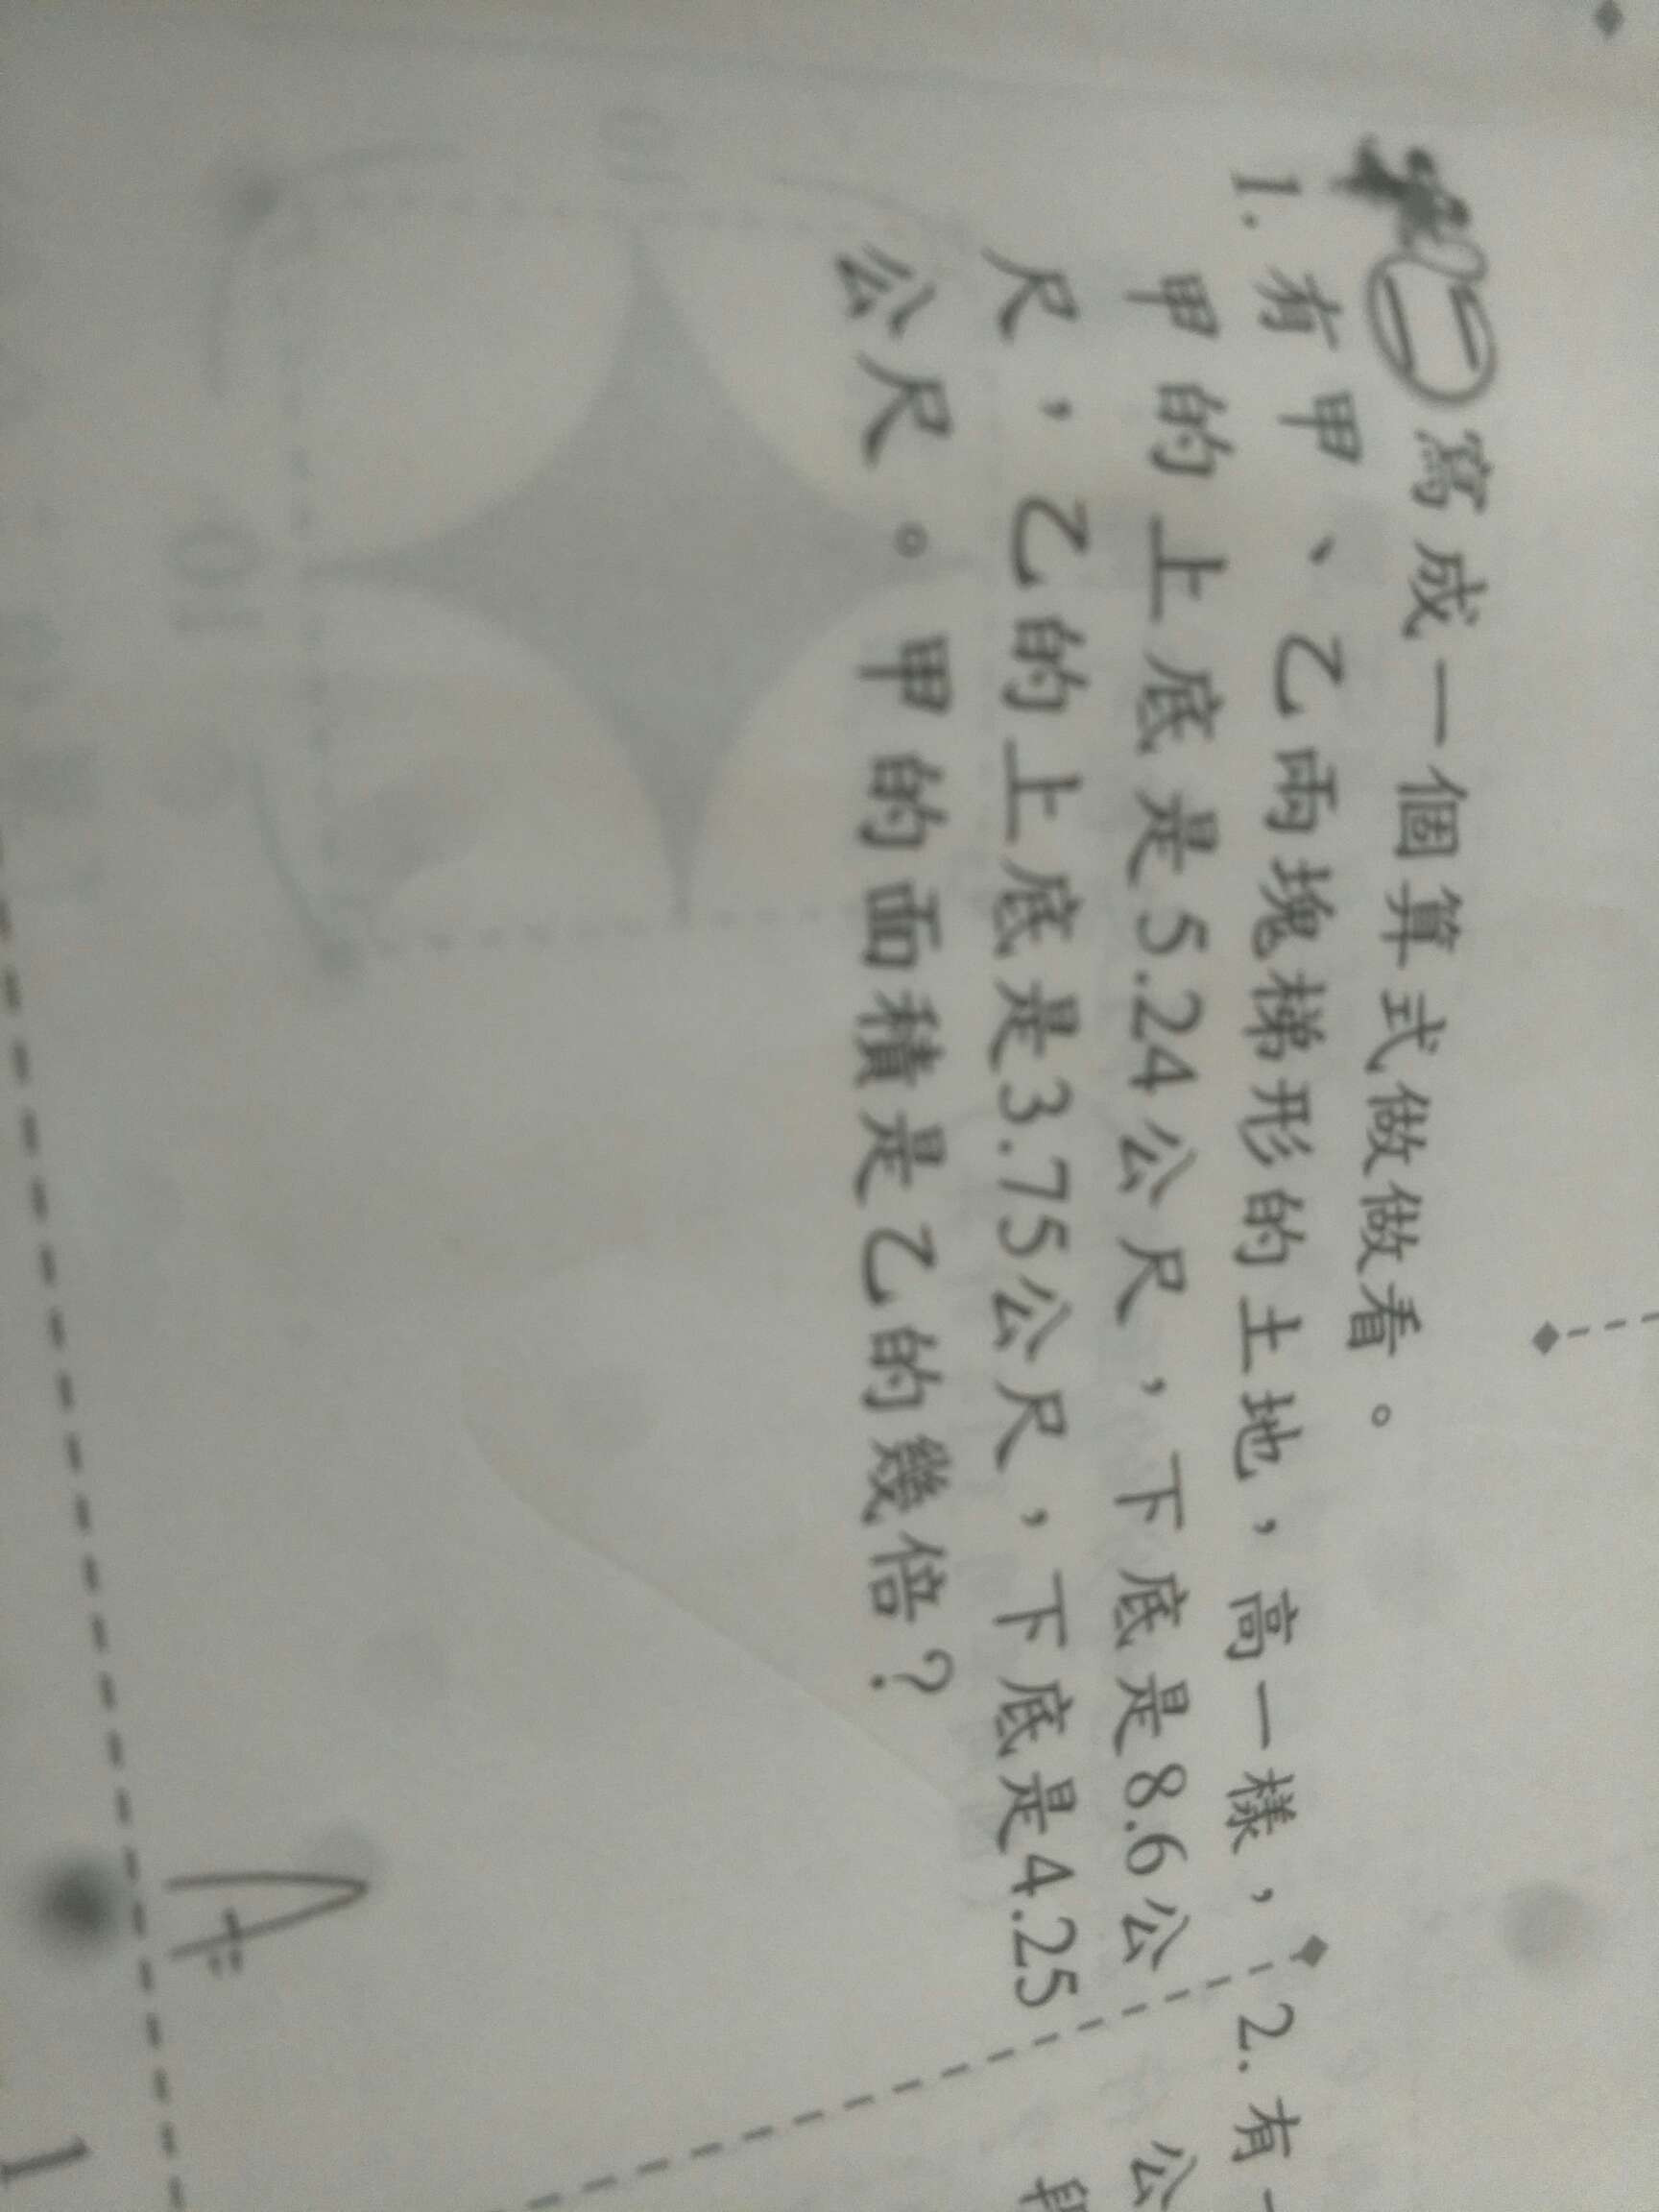 ㊁寫成一個算式做做看。
1. 有甲、乙兩塊梯形的土地，高一樣，
甲的上底是5.24公尺，下底是8.6公
尺，乙的上底是3.75公尺，下底是4.25
公尺。甲的面積是乙的幾倍？
2. 有
公
A:
1